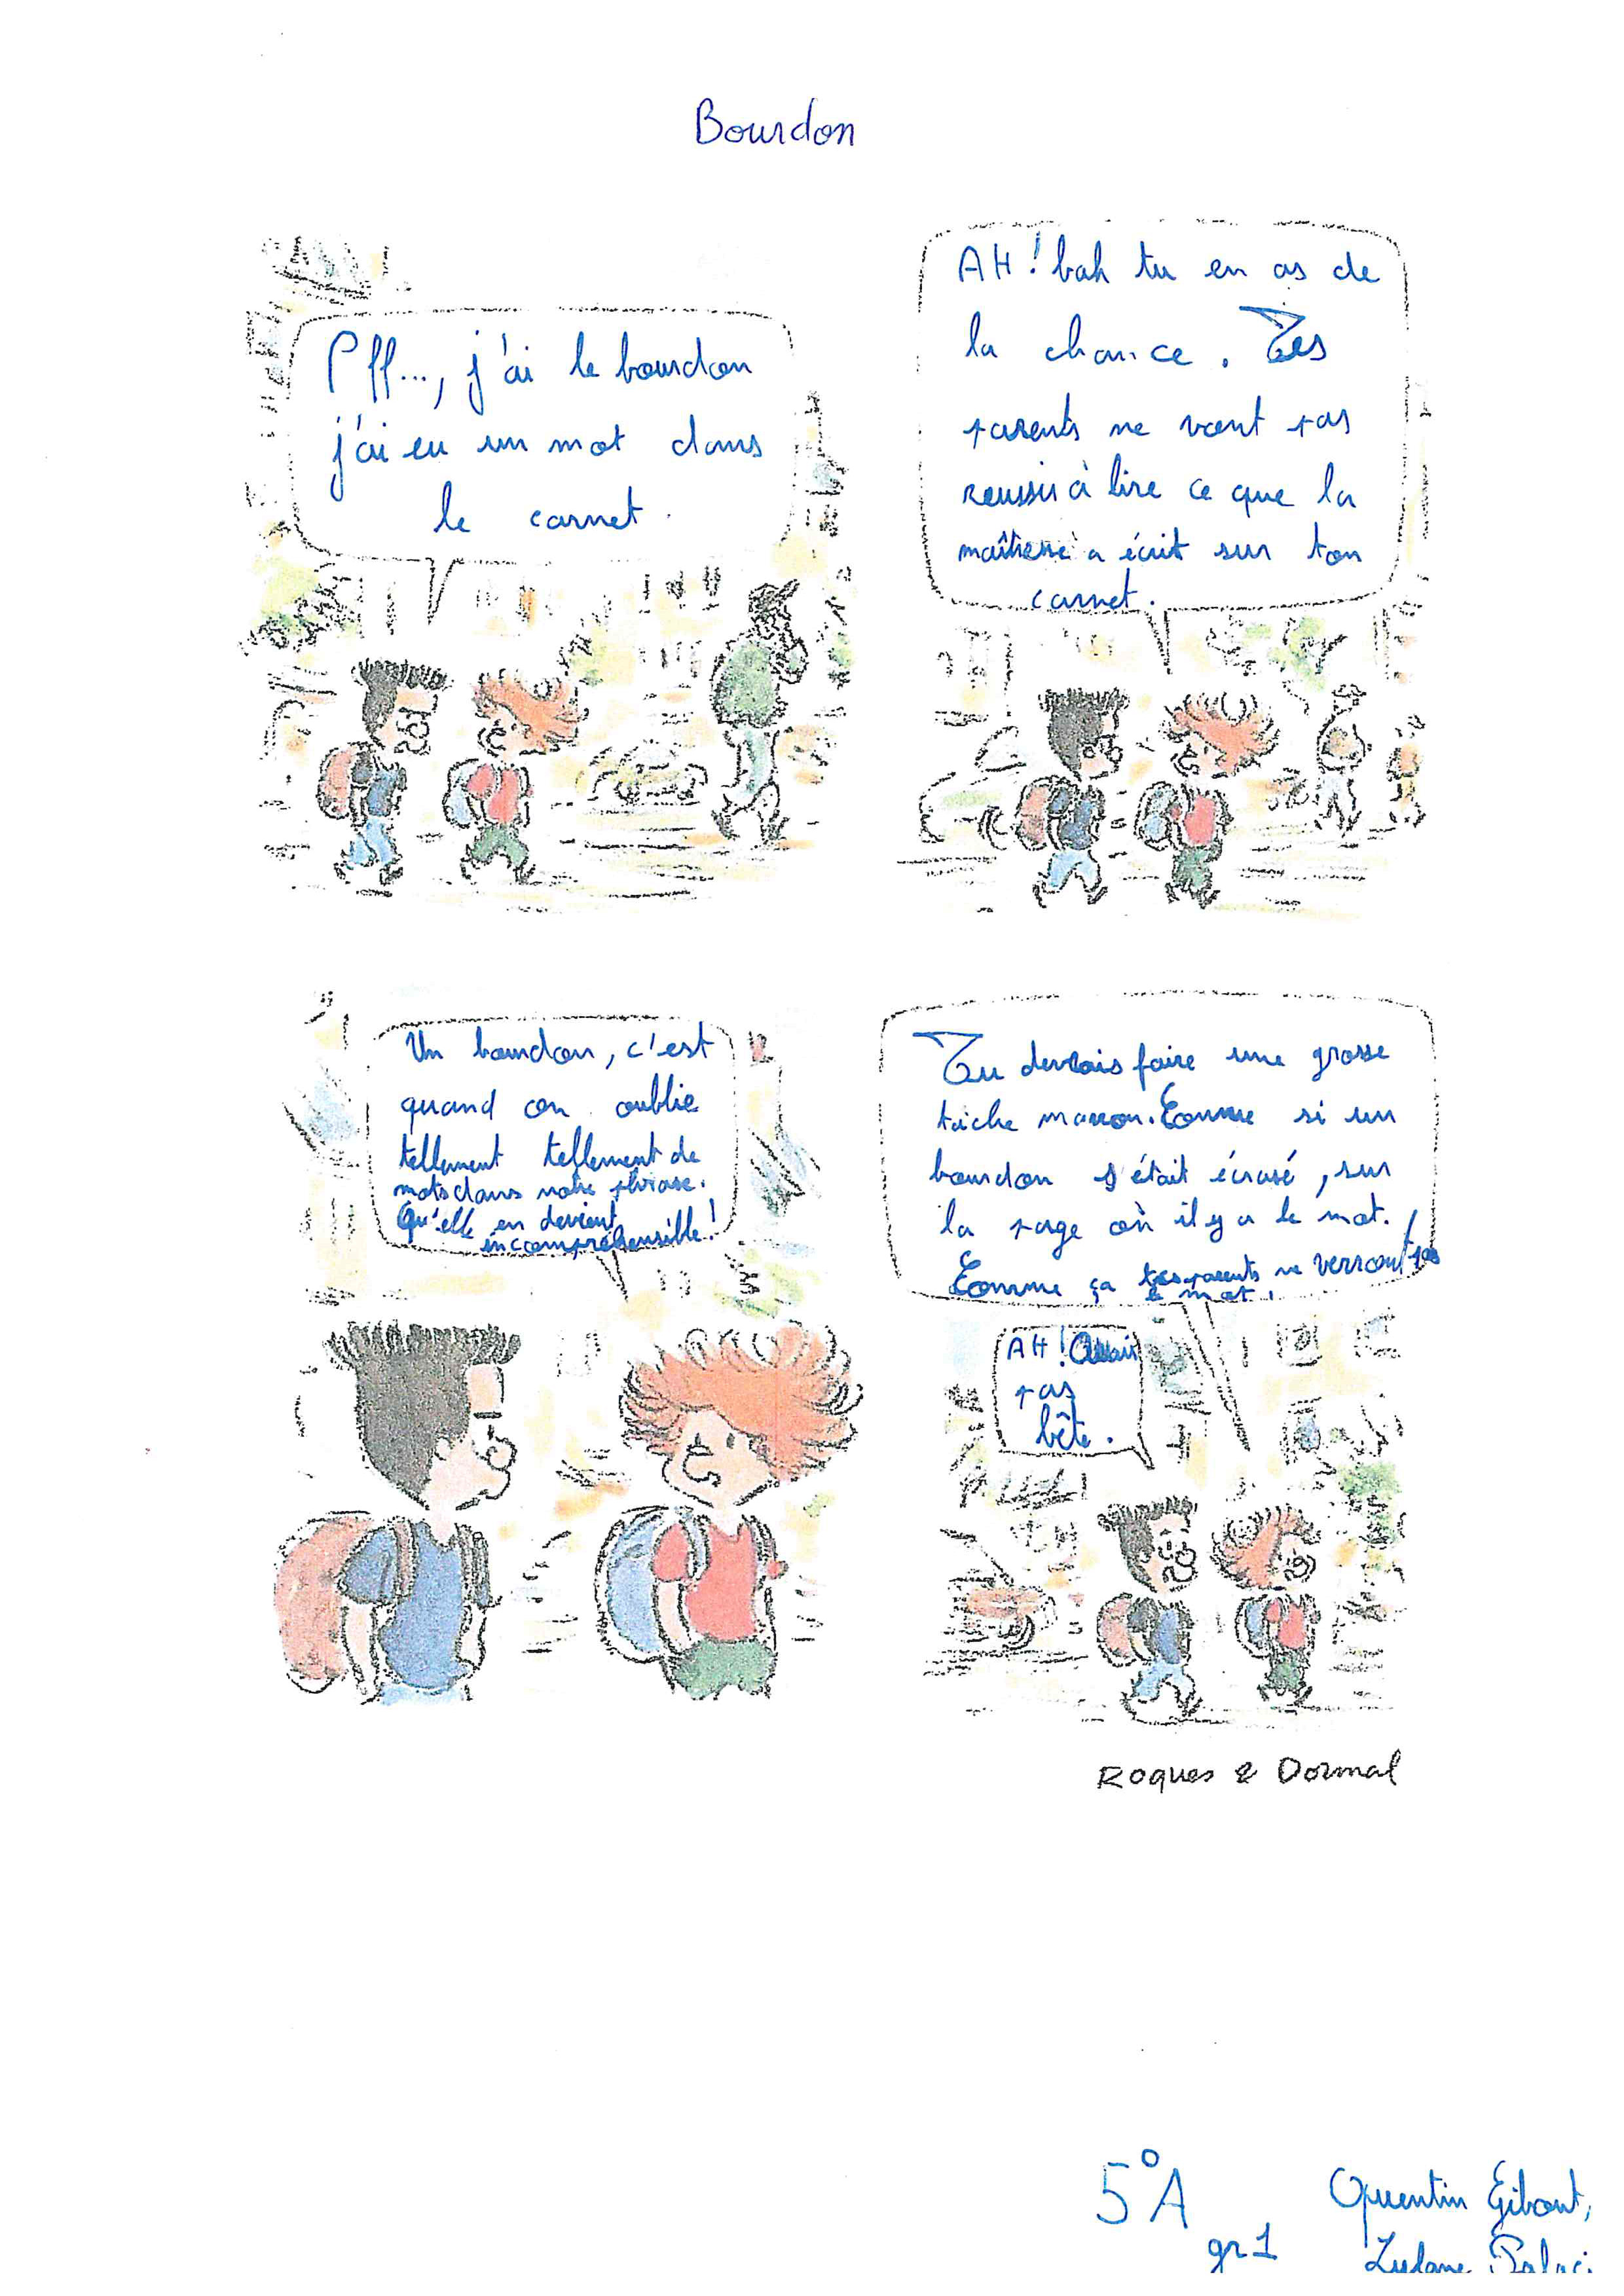 Bourdon
Pff..., j'ai le bourdon
j'ai eu un mot dans
le carnet.
AH! bah tu en as de
la chance. Tes
parents ne vont pas
reussir à lire ce que la
maîtresse a écrit sur ton
carnet.
Un bourdon, c'est
quand on oublie
tellement tellement de
mots dans notre phrase.
Qu'elle en devient
incompréhensible!
Tu devrais faire une grosse
tâche marron. Comme si un
bourdon s'était écrasé, sur
la page où il y a le mot.
Comme ça tes parents ne verront pas
le mot!
AH! Ouais
pas
bête.
Roques & Dormal
5°A
gr1
Quentin